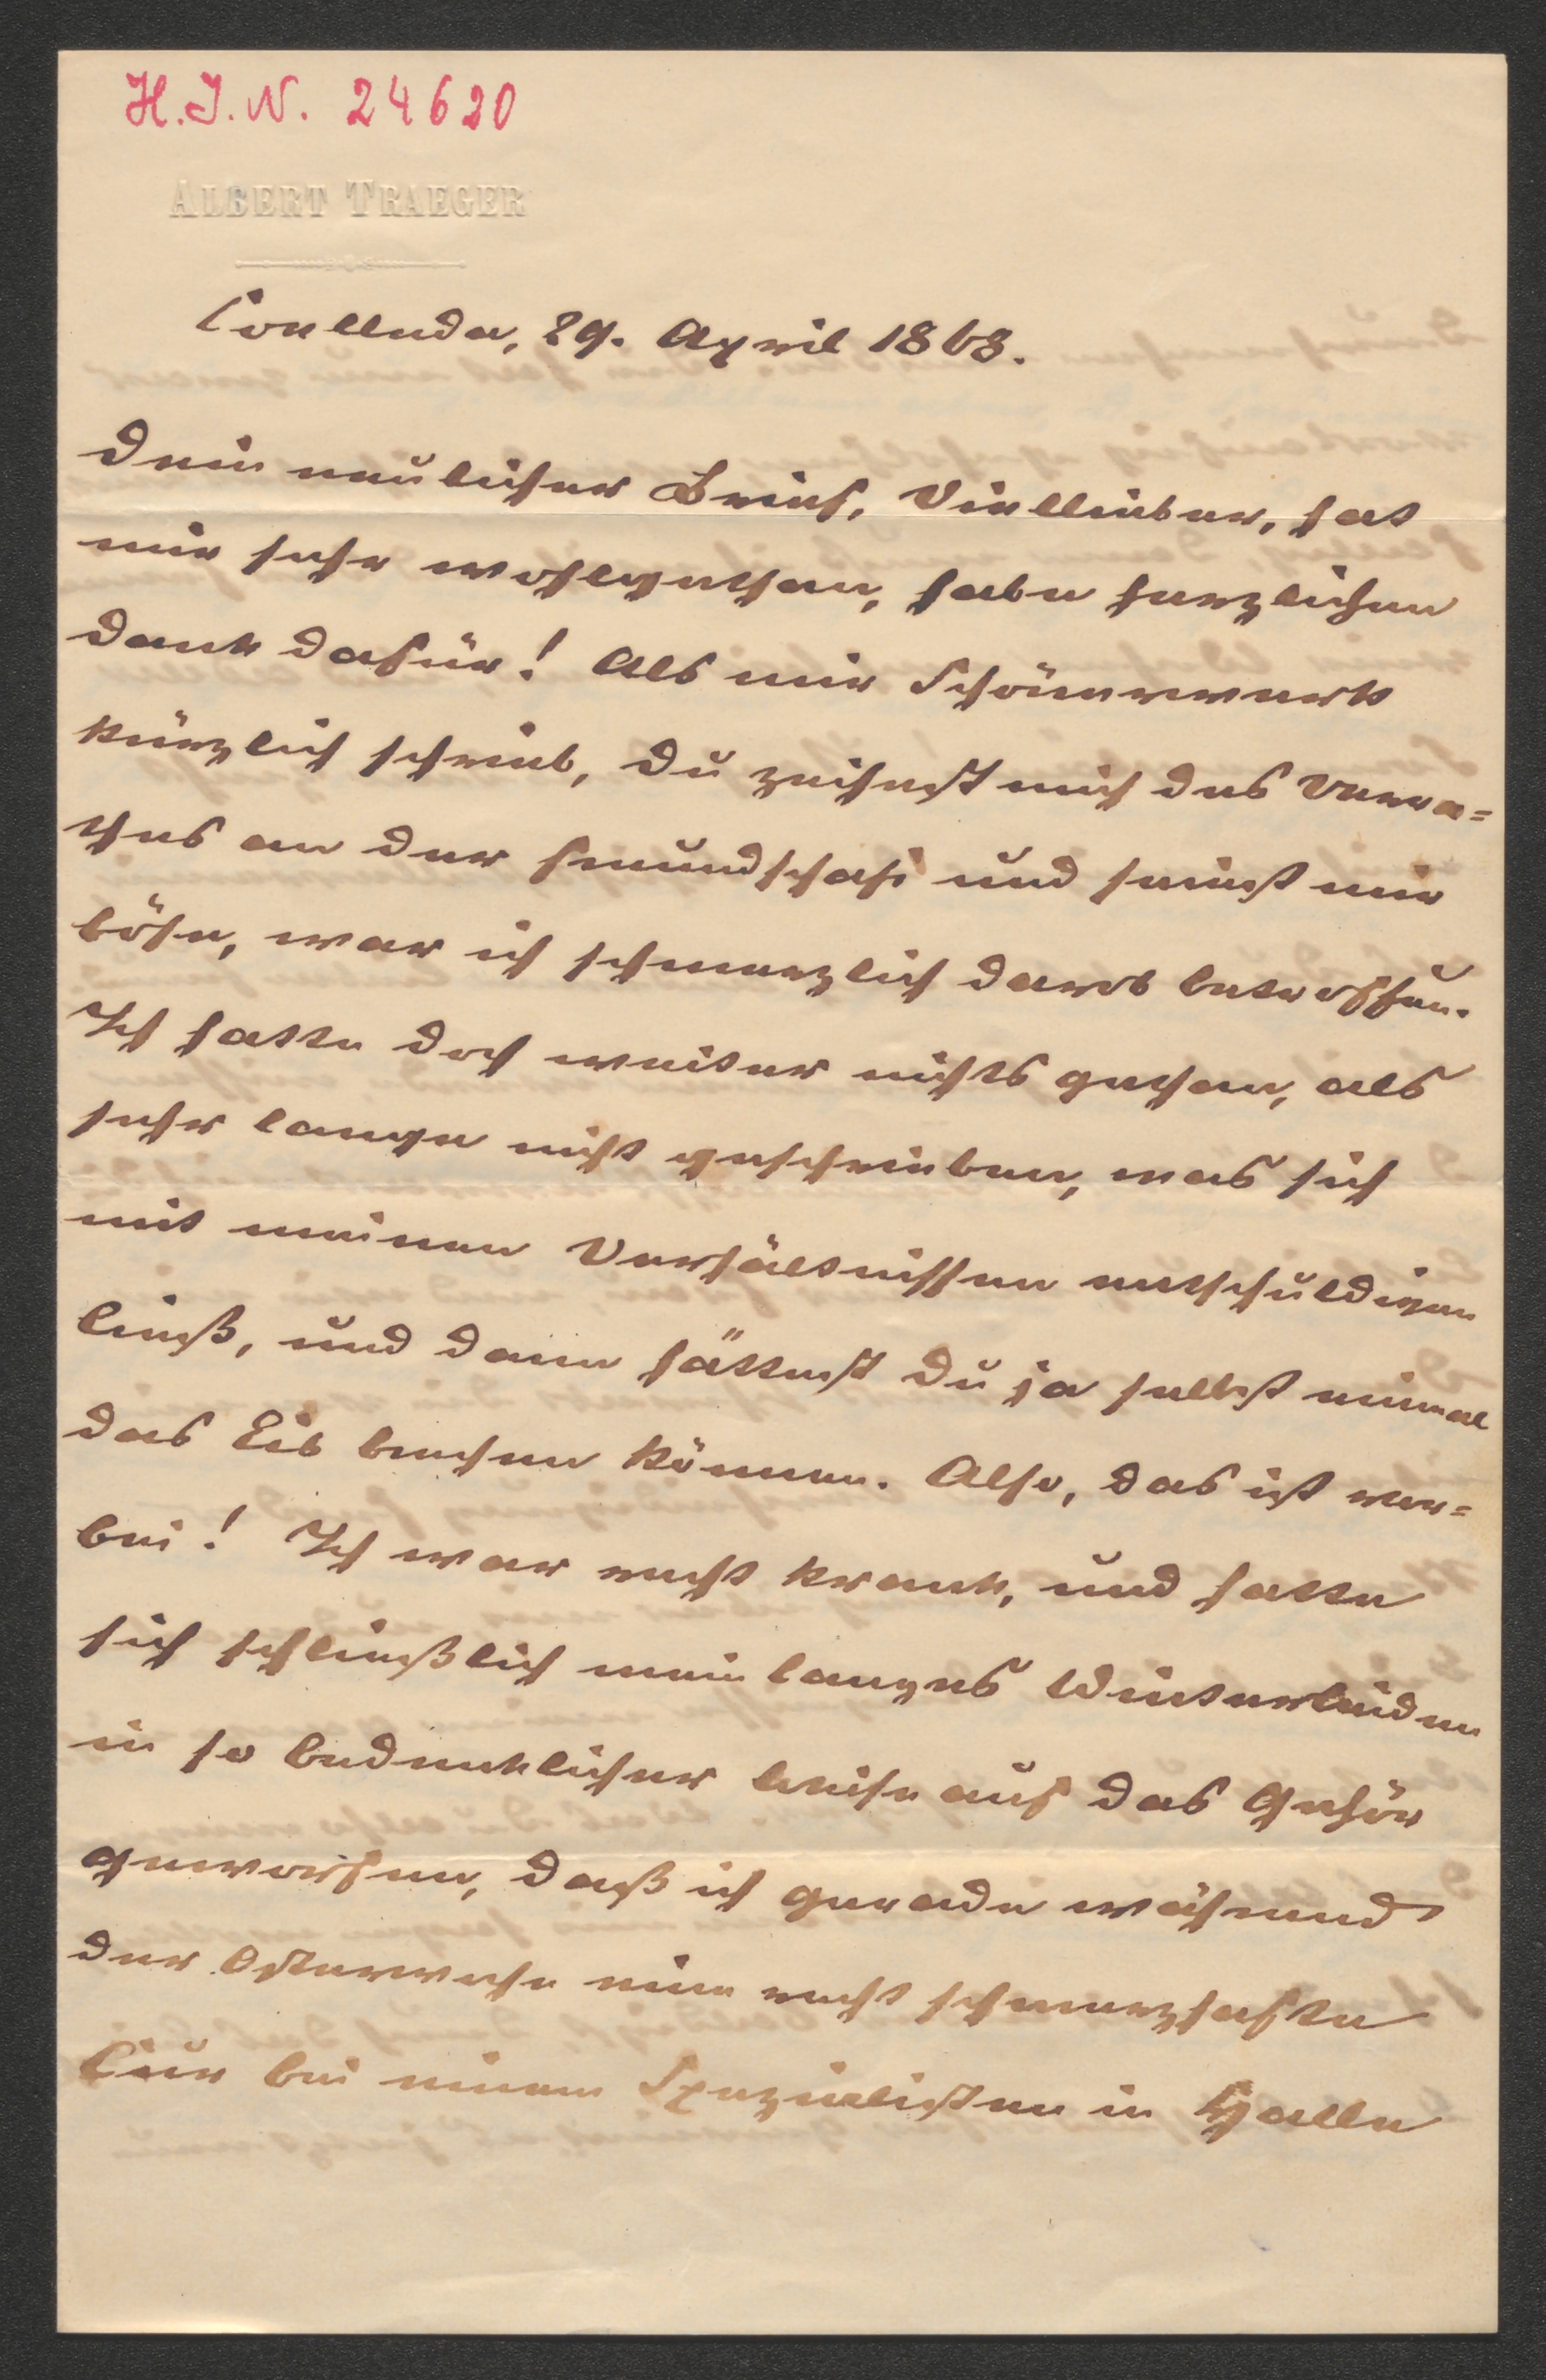 H.J.N. 24620
ALBERT TRAEGER
Coelleda, 29. April 1868.
Dein neulicher Brief, Viellieber, hat
mir sehr wohlgethan, habe herzlichen
Dank dafür! Als mir Schönerwerk
kürzlich schrieb, Du ziehest mich des Verra=
thes an der Freundschaft und seiest mir
böse, war ich schmerzlich darob betroffen.
Ich hatte doch weiter nichts gethan, als
sehr lange nicht geschrieben, was sich
mit meinen Verhältnissen entschuldigen
ließ, und dann hättest Du ja selbst einmal
das Eis brechen können. Also, das ist vor=
bei! Ich war recht krank, und hatte
sich schließlich mein langes Winterleiden
in so bedenklicher Weise auf das Gehör
geworfen, daß ich gerade während
der Osterwoche eine recht schmerzhafte
Cur bei einem Spezialisten in Halle